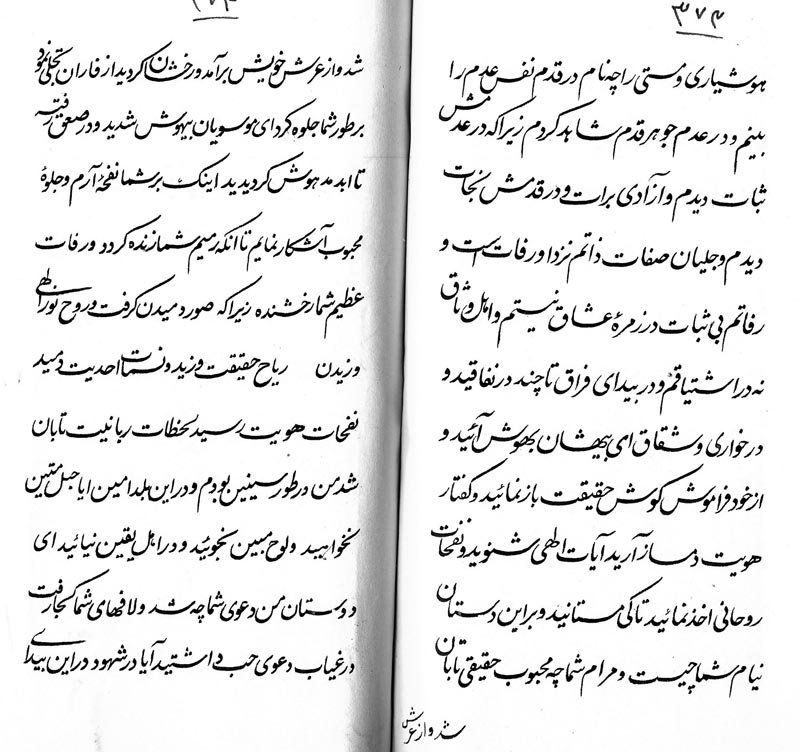 ۳۷۳
هوشیاری و مستی را چه نام در قدم نفس عدم را
بینم و در عدم جوهر قدم شاهد کردم زیرا که در عدمش
ثبات دیدم و آزادی برات و در قدمش نجات
دیدم و جلیان صفات ذاتم نزد او رفات است و
رفاتم بی ثبات در زمرهٔ عشاق نیستم و اهل وثاق
نه در اشتیاقم و در بیدای فراق تا چند در نفاقید و
در خواری و شقاق ای بیهشان بهوش آئید و
از خود فراموش گوش حقیقت باز نمائید و گفتار
هویت دمساز آرید آیات الهی شنوید و نفحات
روحانی اخذ نمائید تا کی مستانید و بر این دستان
نیام شما چیست و مرام شما چه محبوب حقیقی تابان
شد و از عرش
شد و از عرش خویش بر آمد و رخشان گردید از فاران تجلی نمود
بر طور شما جلوه کرد ای موسویان بیهوش شدید و در صعق رفته
تا ابد مدهوش گردیدید اینک بر شما نفحهٔ آرم و جلوهٔ
محبوب آشکار نمایم تا آنکه رمیم شما زنده گردد و رفات
عظیم شما رخشنده زیرا که صور دمیدن گرفت و روح نور الهی
وزیدن ریاح حقیقت وزید و نسمات احدیت دمید
نفحات هویت رسید لحظات ربانیت تابان
شد من در طور سینین بودم و در این بلد امین ایا جبل متین
نخواهید و لوح مبین نجوئید و در اهل یقین نیائید ای
دوستان من دعوی شما چه شد و لافهای شما کجا رفت
در غیاب دعوی حب داشتید آیا در شهود در این بیدای